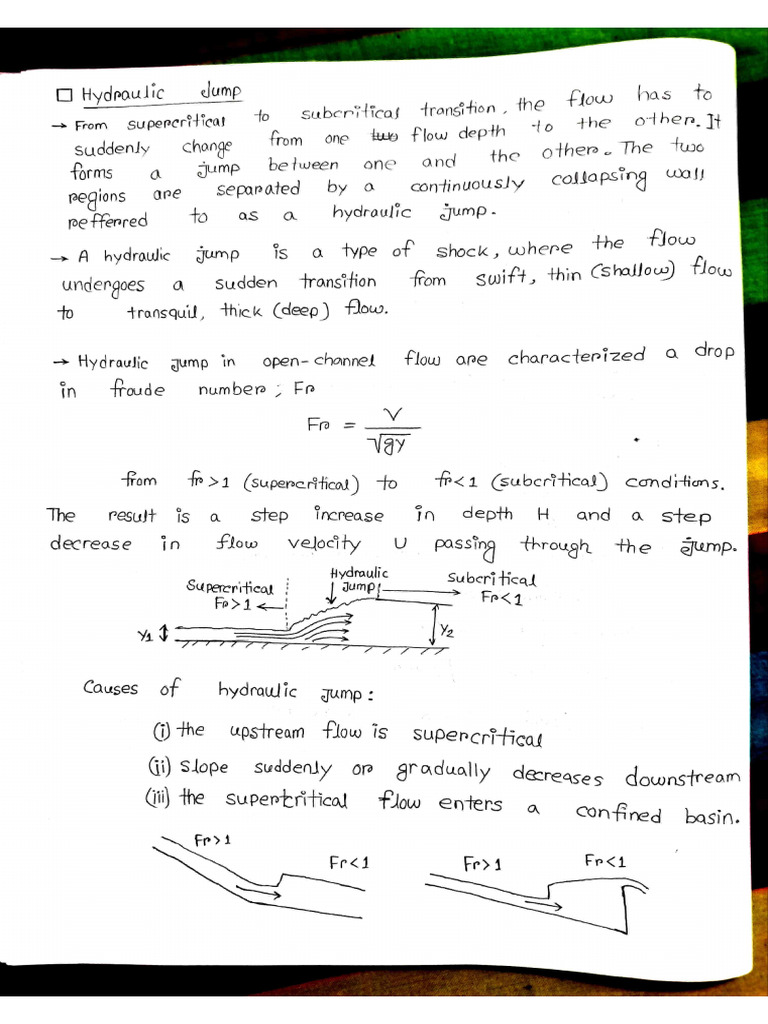 □ Hydraulic Jump
→ From supercritical to subcritical transition, the flow has to
suddenly change from one two flow depth to the other. It
forms a jump between one and the other. The two
regions are separated by a continuously collapsing wall
refferred to as a hydraulic jump.
→ A hydraulic jump is a type of shock, where the flow
undergoes a sudden transition from swift, thin (shallow) flow
to transquil, thick (deep) flow.
→ Hydraulic jump in open-channel flow are characterized a drop
in froude number; Fr
Fr = V / √gy
from fr>1 (supercritical) to fr<1 (subcritical) conditions.
The result is a step increase in depth H and a step
decrease in flow velocity U passing through the jump.
Supercritical
Fr>1 ←
Hydraulic
Jump
Subcritical
Fr<1
y1
y2
Causes of hydraulic jump:
(i) the upstream flow is supercritical
(ii) slope suddenly or gradually decreases downstream
(iii) the supercritical flow enters a confined basin.
Fr>1
Fr<1
Fr>1
Fr<1